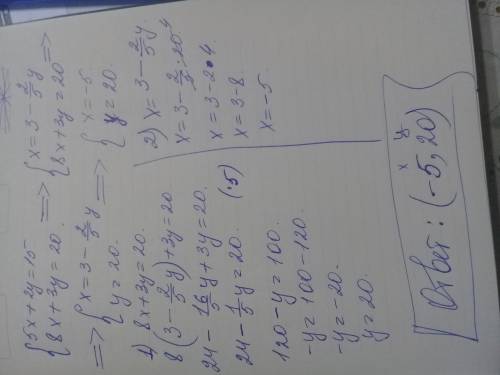 {5x+2y=15 => {x=3-2/5y
{8x+3y=20. {8x+3y=20 =>
=> {x=3-2/5y => {x=-5
{y=20. {y=20.
1) 8x+3y=20.
8(3-2/5y)+3y=20
24-16/5y+3y=20.
24-1/5y=20. (·5)
120-y=100.
-y=100-120.
-y=-20.
y=20.
2) x=3-2/5y
x=3-2/5·20 4
x=3-2·4.
x=3-8.
x=-5.
x y
Ответ: (-5,20)